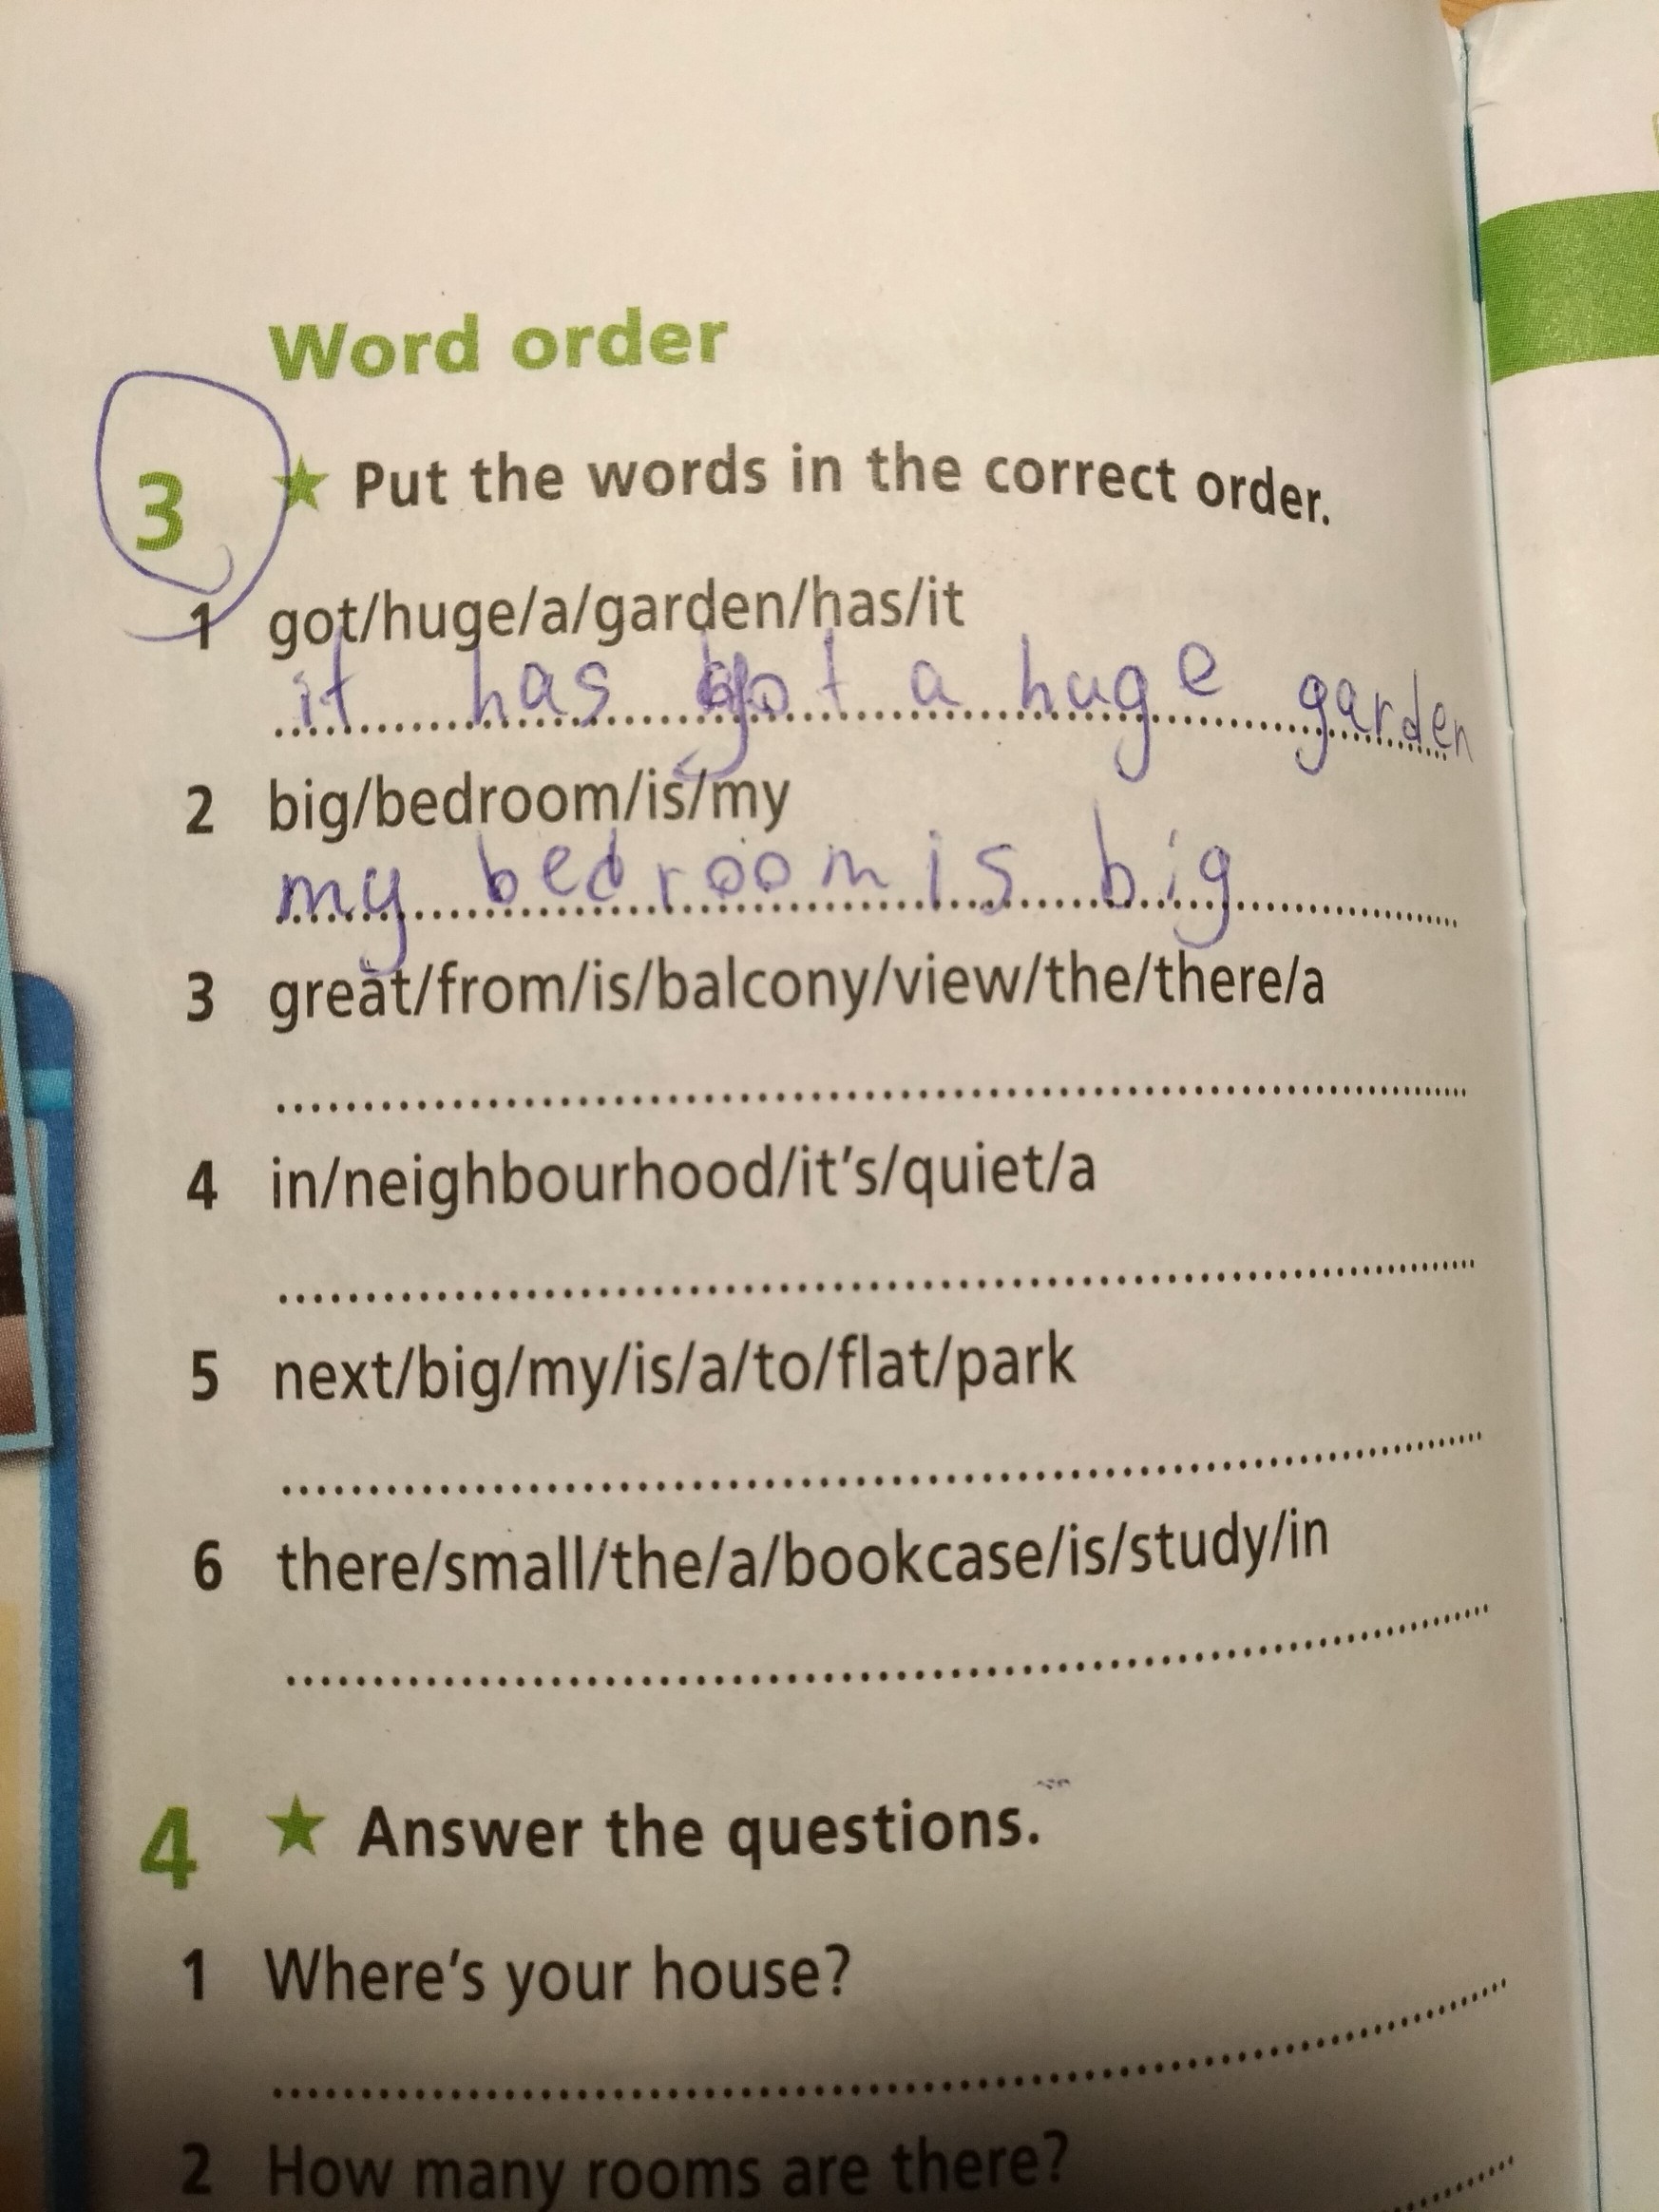 Word order
3 ★ Put the words in the correct order.
1 got/huge/a/garden/has/it
it has got a huge garden
2 big/bedroom/is/my
my bedroom is big
3 great/from/is/balcony/view/the/there/a
4 in/neighbourhood/it's/quiet/a
5 next/big/my/is/a/to/flat/park
6 there/small/the/a/bookcase/is/study/in
4 ★ Answer the questions.
1 Where's your house?
2 How many rooms are there?